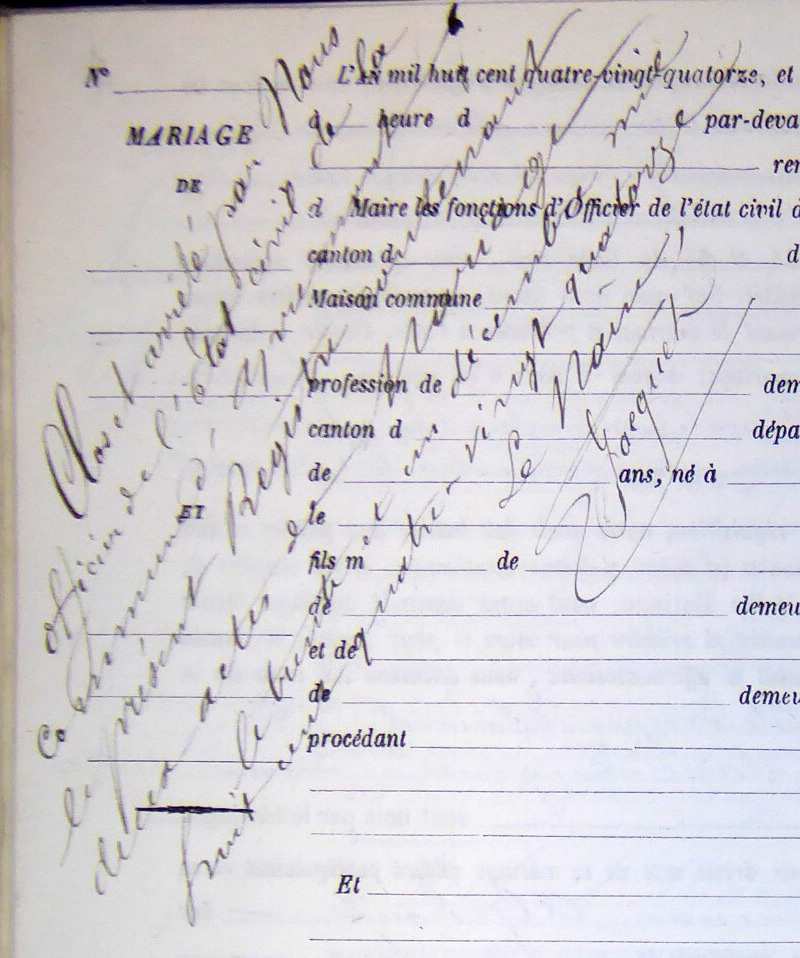 N°
L'An mil huit cent quatre-vingt-quatorze, et
d heure d par-deva
MARIAGE
DE
ren
d Maire les fonctions d'Officier de l'état civil d
canton d d
Maison commune
profession de dem
canton d dépa
de ans, né à
ET
le
fils m de
de demeu
et de
de demeu
procédant
Et
Clos et arrêté par Nous
officier de l'état civil de la
Commune d'
le présent Registre contenant
deux actes de Mariage
le trente et un décembre mil
cent quatre-vingt quatorze
Le Maire,
Jacquet